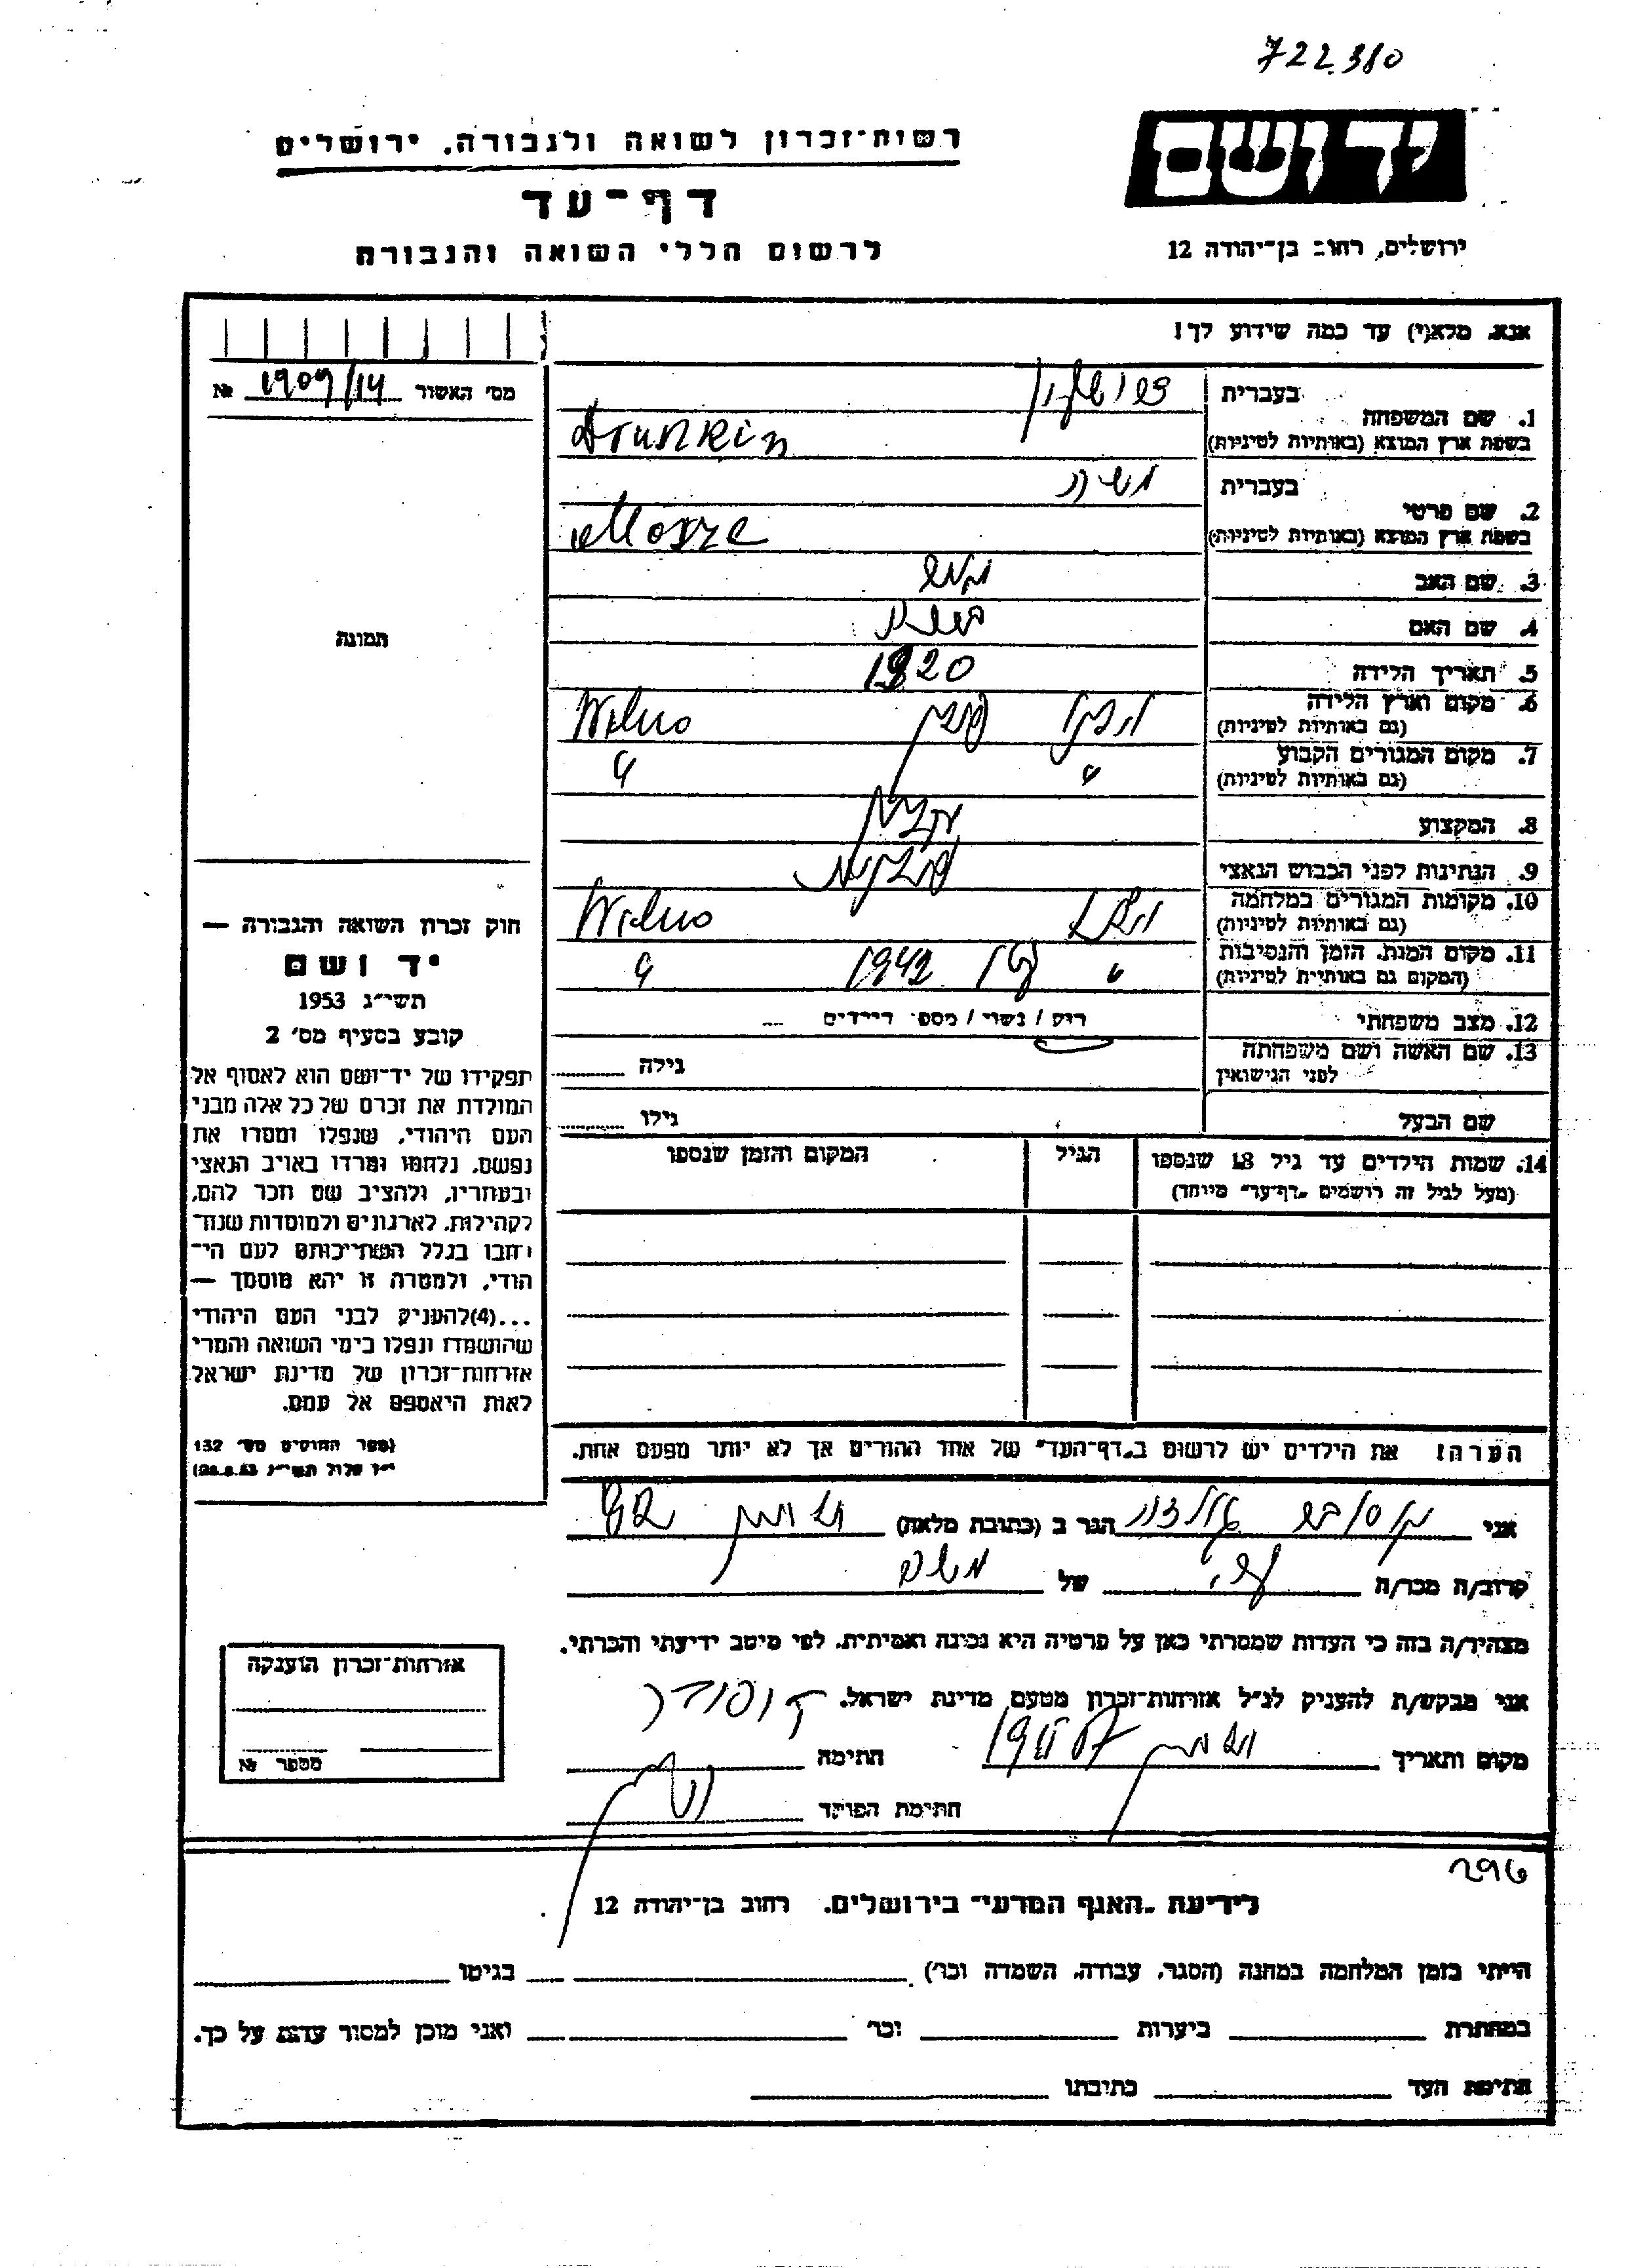 722.380
יד ושם
רשות-זכרון לשואה ולגבורה, ירושלים
דף-עד
לרשום חללי השואה והגבורה
ירושלים, רחוב בן-יהודה 12
אנא, מלא(י) עד כמה שידוע לך!
מס׳ האשור 1909/14 №
תמונה
1. שם המשפחה
בעברית
בשפת ארץ המוצא (באותיות לטיניות) Drunkin
2. שם פרטי
בעברית משה
בשפת ארץ המוצא (באותיות לטיניות) Mosze
3. שם האב
4. שם האם
5. תאריך הלידה 1920
6. מקום וארץ הלידה
(גם באותיות לטיניות) וילנה פולין Wilno
7. מקום המגורים הקבוע
(גם באותיות לטיניות) " "
8. המקצוע
9. הנתינות לפני הכבוש הנאצי פולנית
10. מקומות המגורים במלחמה
(גם באותיות לטיניות) וילנה Wilno
11. מקום המות, הזמן והנסיבות
(המקום גם באותיות לטיניות) " 1942 "
12. מצב משפחתי רווק / נשוי / מספר הילדים ...
13. שם האשה ושם משפחתה
לפני הנישואין גילה
שם הבעל גילו
14. שמות הילדים עד גיל 18 שנספו
(מעל לגיל זה רושמים "דף-עד" מיוחד)
הגיל
המקום והזמן שנספו
חוק זכרון השואה והגבורה —
יד ושם
תשי״ג 1953
קובע בסעיף מס׳ 2
תפקידו של יד-ושם הוא לאסוף אל
המולדת את זכרם של כל אלה מבני
העם היהודי, שנפלו ומסרו את
נפשם, נלחמו ומרדו באויב הנאצי
ובעוזריו, ולהציב שם וזכר להם,
לקהילות, לארגונים ולמוסדות שנח-
רבו בגלל השתייכותם לעם הי-
הודי, ולמטרה זו יהא מוסמך —
...(4)להעניק לבני העם היהודי
שהושמדו ונפלו בימי השואה והמרי
אזרחות-זכרון של מדינת ישראל
לאות היאספם אל עמם.
(ספר החוקים מס׳ 132
י״ז אלול תשי״ג 28.8.53)
הערה! את הילדים יש לרשום ב"דף-העד" של אחד ההורים אך לא יותר מפעם אחת.
אני הגר ב (כתובת מלאה)
קרוב/ה מכר/ה של משה
מצהיר/ה בזה כי העדות שמסרתי כאן על פרטיה היא נכונה ואמיתית, לפי מיטב ידיעתי והכרתי.
אני מבקש/ת להעניק לנ״ל אזרחות-זכרון מטעם מדינת ישראל.
מקום ותאריך חתימה
חתימת הפוקד
אזרחות-זכרון הוענקה
מספר №
לידיעת "האגף המדעי" בירושלים, רחוב בן-יהודה 12
הייתי בזמן המלחמה במחנה (הסגר, עבודה, השמדה וכו׳) בגיטו
במחתרת ביערות וכו׳ ואני מוכן למסור עדות על כך.
חתימת העד כתובתו